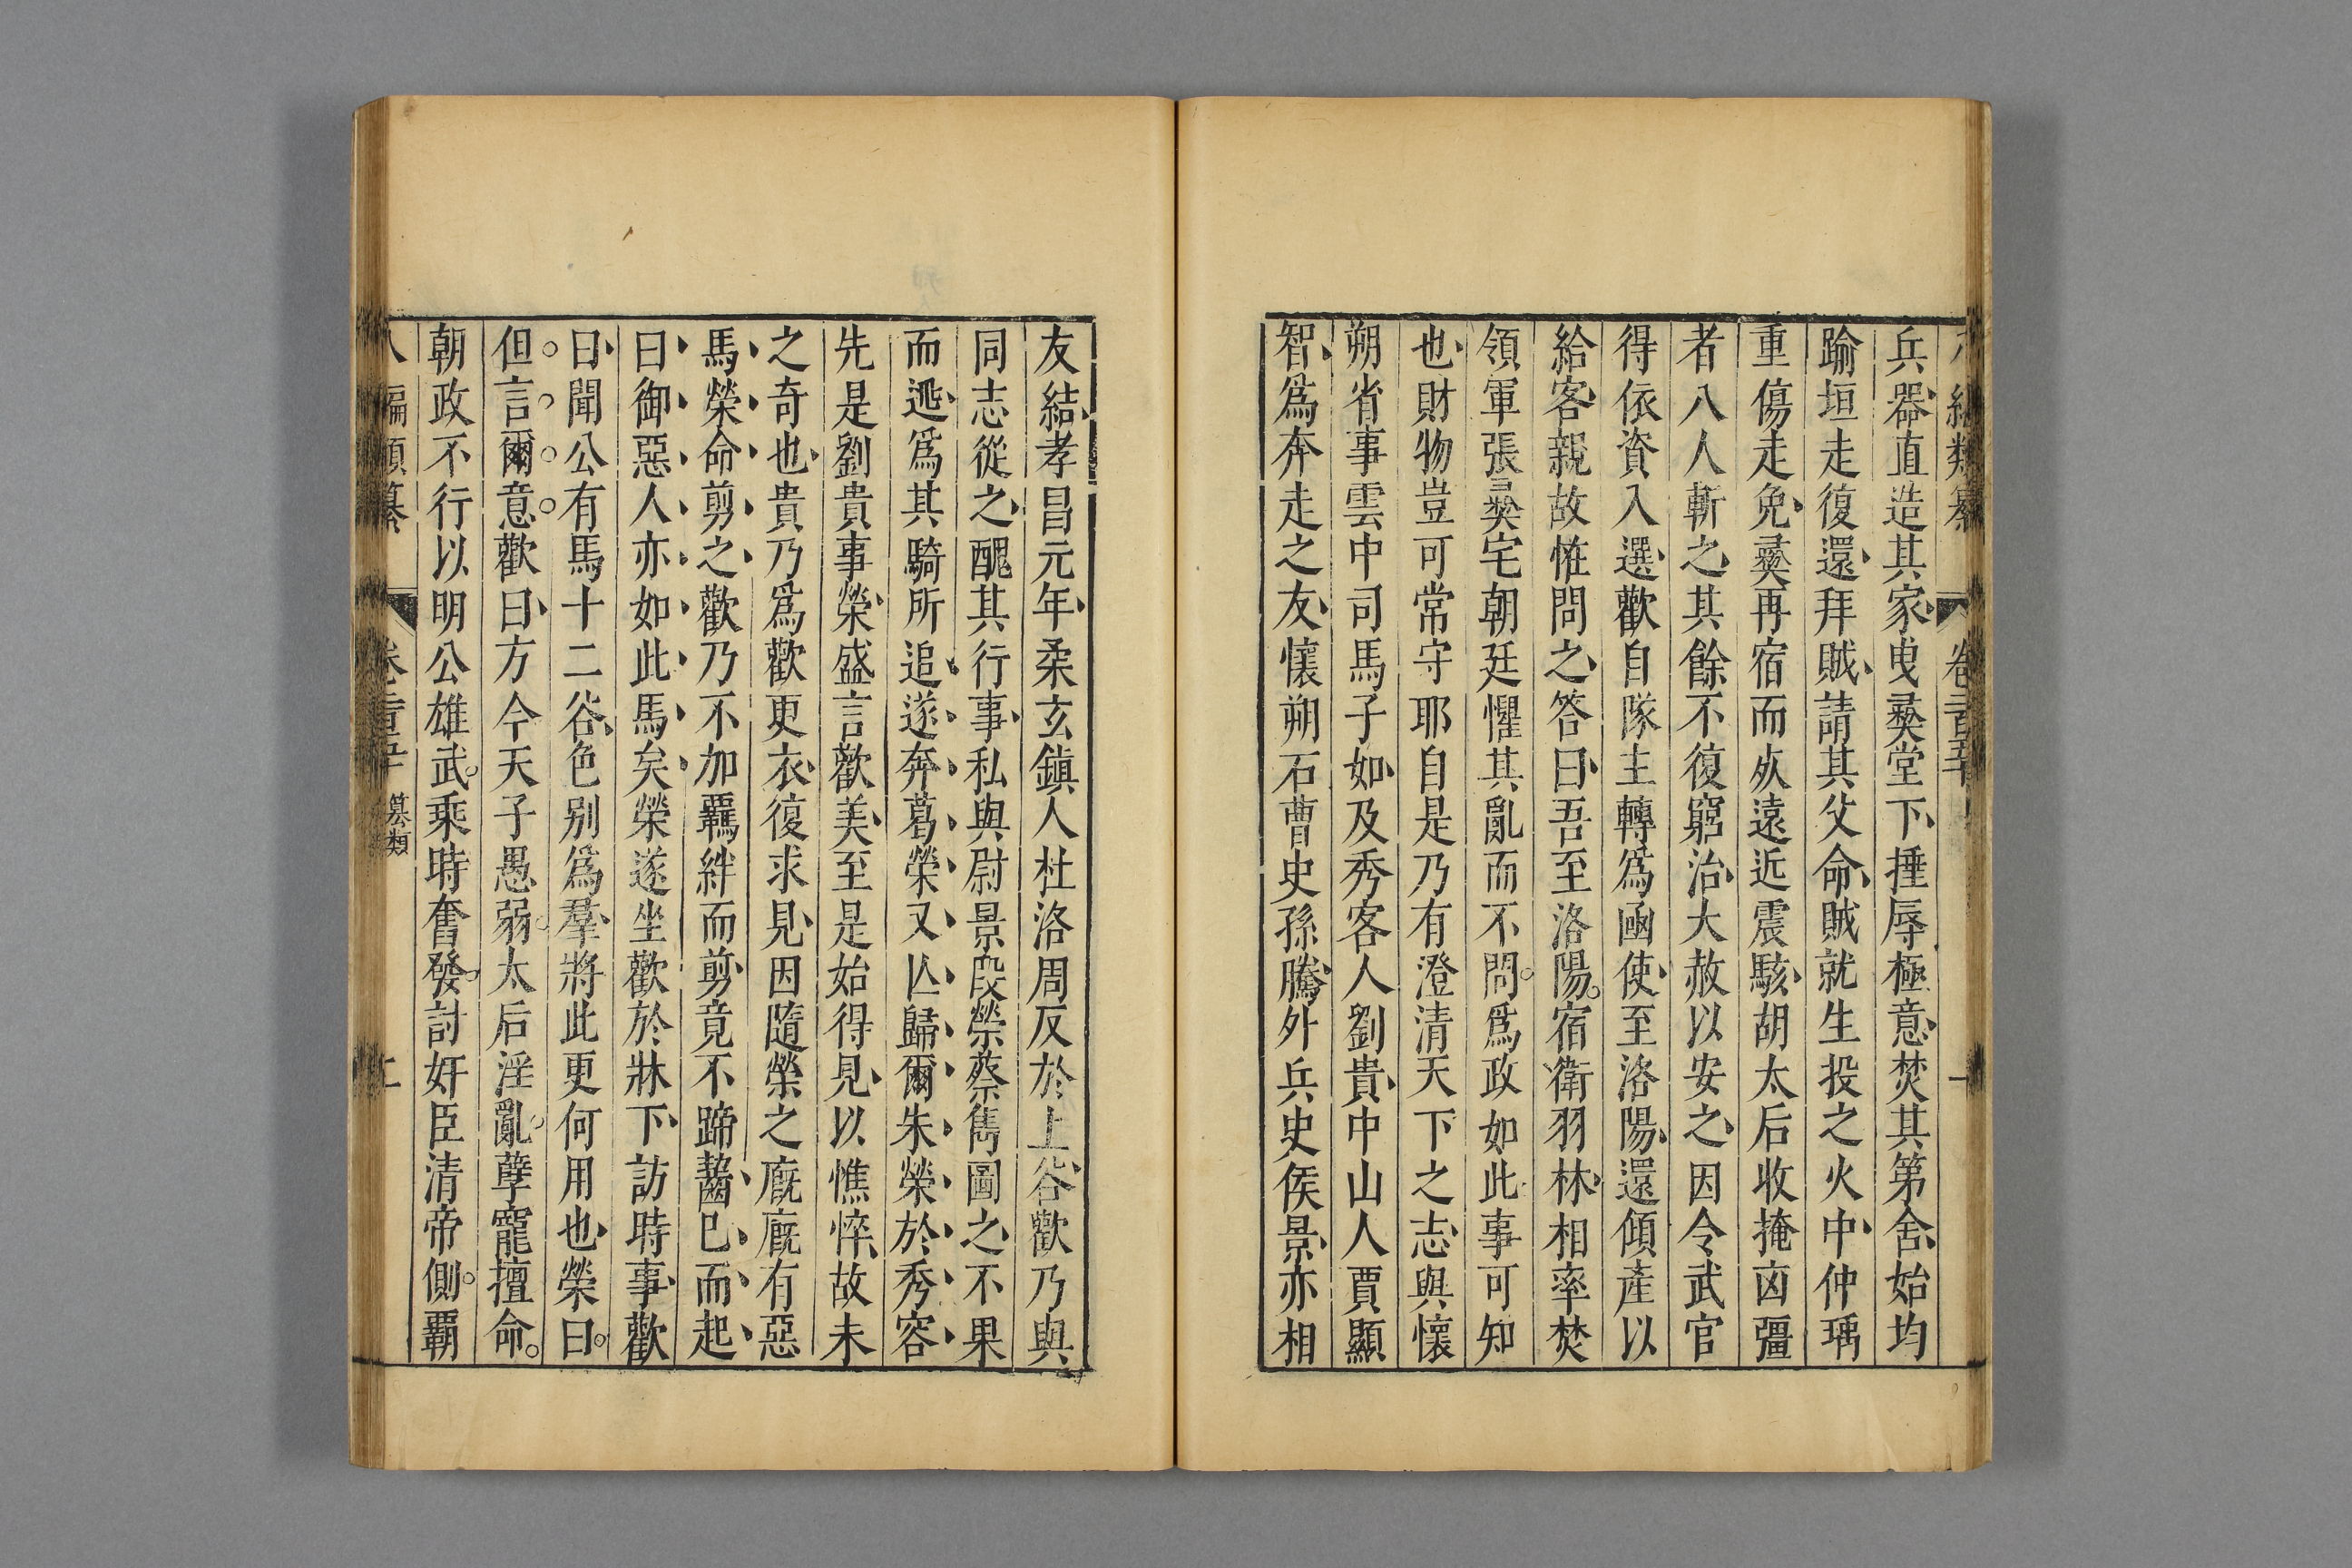 兵器直造其家曳彝堂下捶辱極意焚其第舍始均
踰垣走復還拜賊請其父命賊就生投之火中仲瑀
重傷走免彝再宿而死遠近震駭胡太后收掩凶彊
者八人斬之其餘不復窮治大赦以安之因令武官
得依資入選歡自隊主轉爲函使至洛陽還傾產以
給客親故惟問之答曰吾至洛陽宿衛羽林相率焚
領軍張彝宅朝廷懼其亂而不問爲政如此事可知
也財物豈可常守耶自是乃有澄清天下之志與懷
朔省事雲中司馬子如及秀客人劉貴中山人賈顯
智爲奔走之友懷朔石曹史孫騰外兵史侯景亦相
友結孝昌元年柔玄鎮人杜洛周反於上谷歡乃與
同志從之醜其行事私與尉景段榮蔡雋圖之不果
而逃爲其騎所追遂奔葛榮又亾歸爾朱榮於秀容
先是劉貴事榮盛言歡美至是始得見以憔悴故未
之奇也貴乃爲歡更衣復求見因隨榮之廐廐有惡
馬榮命剪之歡乃不加羈絆而剪竟不蹄齧已而起
曰御惡人亦如此馬矣榮遂坐歡於牀下訪時事歡
曰聞公有馬十二谷色别爲羣將此更何用也榮曰
但言爾意歡曰方今天子愚弱太后淫亂孽寵擅命
朝政不行以明公雄武乘時奮發討奸臣清帝側覇
八編類纂